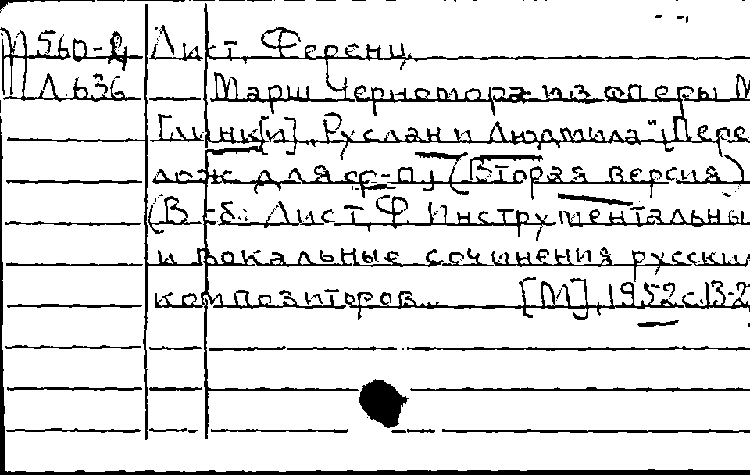 М 560-4 Лист, Ференц.
Л 636 Марш Черномора из оперы М
Глинк[и] „Руслан и Людмила" [Пере
лож. для ф-п.] (Вторая версия)
(В сб.: Лист, Ф. Инструментальны
и вокальные сочинения русски
композиторов... [М], 1952 с. 13-2